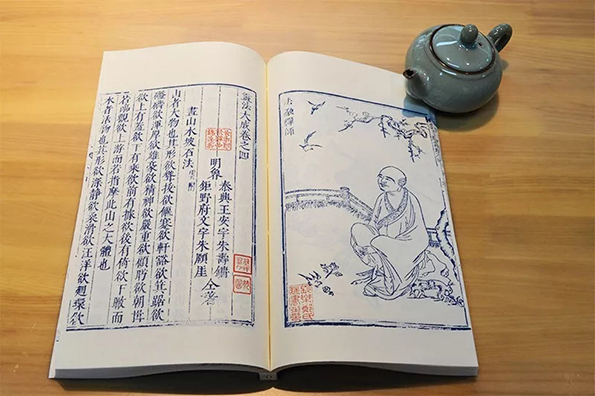 畫法大成卷之四
明魯
泰興王安宇朱壽鏞
鉅野府文宇朱頤厓
仝著
畫山水坡石法
山者大物也其形欲聳拔欲偃蹇欲軒豁欲箕踞欲
盤礴欲渾厚欲雄豪欲精神欲嚴重欲顧盼欲朝揖
欲上有蓋欲下有乘欲前有據欲後有倚欲下瞰而
若臨觀欲上游而若指麾此山之大體也
水者活物也其形欲深靜欲柔滑欲汪洋欲廻環欲
法融禪師